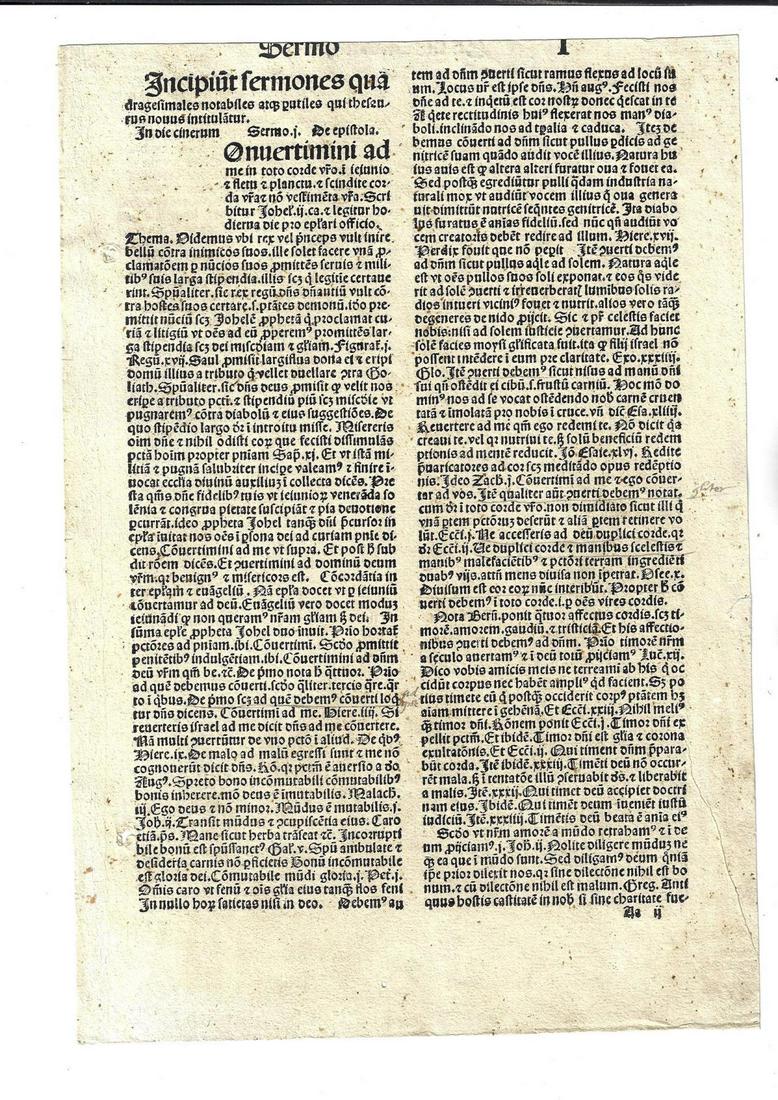 Sermo I
Incipiūt sermones qua
dragesimales notabiles atqꝫ ꝑutiles qui thesau-
rus nouus intitulātur.
In die cinerum Sermo.j. De epistola.
Onuertimini ad
me in toto corde vr̄o.ī ieiunio
⁊ fletu ⁊ planctu.⁊ scindite cor-
da vr̄a⁊ nō vestimēta vr̄a. Scri
bitur Johel̓.ij.ca.⁊ legitur ho-
dierna die pro epl̄ari officio.
Thema. Uidemus vbi rex vel p̄nceps vult inire
bellū cōtra inimicos suos.ille solet facere vnā ꝓ-
clamatōem ꝑ nūcios suos ꝓmittēs seruis ⁊ mili-
tibꝰ suis larga stipendia. illis scꝫ q̄ legitie certaue
rint. Spūaliter. sic rex regū.dn̄s dn̄antiū vult cō-
tra hostes suos certare. s. ptātes demonū. iō pre
mittit nūciū scꝫ Johelē ꝓphetā q̄ proclamat cu-
riā ⁊ litigiū vt oēs ad eū ꝓperemꝰ promittēs lar-
ga stipendia scꝫ dei miscd̓iam ⁊ gl̄iam. Figurat̓.j.
Regū.xvij. Saul ꝓmisit largiflua dona ei ⁊ eripi
domū illius a tributo q̄ vellet duellare ꝯtra Go-
liath. Spūaliter. sic dn̄s deus ꝓmisit ꝙ velit nos
eripe a tributo pctī.⁊ stipendiū piū scꝫ miscd̓ie vt
pugnaremꝰ cōtra diabolū ⁊ eius suggestiōes. De
quo stipēdio largo dr̄ ī introitu misse. Misereris
oim dn̄e ⁊ nihil odisti eoꝝ que fecisti dissimulās
pctā hoīm propter pn̄iam Sap̄.xj. Et vt istā mi-
litiā ⁊ pugnā salubriter incipe valeamꝰ ⁊ finire ī-
uocat ecclīa diuinū auxiliuꝫ ī collecta dicēs. Pre
sta qm̄s dn̄e fidelibꝰ tuis vt ieiunioꝝ venerāda so
lēnia ⁊ congrua pietate suscipiāt ⁊ pia deuotione
ꝑcurrāt. ideo ꝓpheta Johel tanq̄ꝫ dn̄i p̄cursor in
epl̄a īuitat nos oēs ī ꝑsona dei ad curiam pn̄ie di-
cens. Cōuertimini ad me vt supra. Et post ꝧ sub
dit rōem dicēs. Et ꝯuertimini ad dominū deum
vr̄m. qꝛ benignꝰ ⁊ misericors est. Cōcordātia in
ter epl̄am ⁊ euāgeliū. Nā epl̄a docet vt ꝑ ieiuniū
cōuertamur ad deū. Euāgeliū vero docet moduꝫ
ieiunādi ꝙ non queramꝰ nr̄am gl̄iam ꝫ dei. In
sūma epl̄e ꝓpheta Johel duo īnuit. Prīo hortat̓
pctōres ad pn̄iam. ibi. Cōuertimī. Scd̓o ꝓmittit
penitētibꝰ indulgētiam. ibi. Cōuertimini ad dn̄m
deū vr̄m qm̄ be. ⁊c̄. De p̄mo nota ꝧ q̄ttuor. Prīo
ad quē debemus cōuerti. scd̓o q̄liter. tercio q̄re. qr̄
to ī q̄bus. De p̄mo scꝫ ad quē debemꝰ cōuerti loq̄
tur dn̄s dicens. Cōuertimini ad me. Hiere.iiij. Si
reuerteris israel ad me dicit dn̄s ad me cōuertere.
Nā multi ꝯuertūtur de vno pctō ī aliud. De q̄bꝰ
Hiere.ix. De malo ad malū egressi sunt ⁊ me nō
cognouerūt dicit dn̄s. Rō.qꝛ pctm̄ ē auersio a do.
Augꝰ. Spreto bono incomutabili cōmutabilibꝰ
bonis inherere. mō deus ē īmutabilis. Malach.
iij. Ego deus ⁊ nō minor. Mūdus ē mutabilis.j.
Joh̄.ij. Transit mūdus ⁊ ꝯcupiscētia eius. Caro
etiā. p̄s. Mane sicut herba trāseat ⁊c̄. Incorrupti
bile bonū est spūssanctꝰ Gal̓.v. Spū ambulate ⁊
desideria carnis nō ꝑficietis Bonū incōmutabile
est gloria dei. Cōmutabile mūdi gloria.j. Pet̓.j.
Om̄is caro vt fenū ⁊ oīs gl̄ia eius tanq̄ꝫ flos feni
In nullo hoꝝ satietas nisi in deo. Debemꝰ au
tem ad dn̄m ꝯuerti sicut ramus flexus ad locū su
um. Locus vr̄ est ipse dn̄s. Vn̄ augꝰ. Fecisti nos
dn̄e ad te.⁊ inq̄etū est cor nostꝝ donec q̄escat in te
A q̄ete rectitudinis huiꝰ flexerat nos manꝰ dia-
boli.inclinādo nos ad tꝑalia ⁊ caduca. Iteꝫ de
bemus cōuerti ad dn̄m sicut pullus ꝑdicis ad ge
nitricē suam quādo audit vocē illius. Natura hu
ius auis est ꝙ altera alteri furatur oua ⁊ fouet ea.
Sed postq̄ꝫ egrediūtur pulli q̄dam industria na-
turali mox vt audiūt vocem illius q̄ oua genera
uit dimittūt nutricē seq̄ntes genitricē. Ita diabo
lus furatus ē aīas fideliū. sed nūc qn̄ audiūt vo
cem creatoris debēt redire ad illum. Hiere.xvij.
Perdix fouit que nō peꝑit Itē ꝯuerti debemꝰ
ad dn̄m sicut pullus aq̄le ad solem. Natura aq̄le
est vt oēs pullos suos soli exponat.⁊ eos q̄s vide
rit ad solē ꝯuerti ⁊ irreuerberat̓ luminibus solis ra
dios intueri viciniꝰ fouet ⁊ nutrit. alios vero tāq̄ꝫ
degeneres de nido ꝓijcit. Sic ⁊ pr̄ celestis faciet
nobis: nisi ad solem iusticie ꝯuertamur. Ad hunc
solē facies moysi gl̄ificata fuit. ita ꝙ filij israel nō
possent intēdere ī eum pre claritate. Exo.xxxiiij.
Glo. Itē ꝯuerti debemꝰ sicut nisus ad manū dn̄i
sui qn̄ ostēdit ei cibū. s. frustū carniū. Hoc mō do
minꝰ nos ad se vocat ostēdendo nob̄ carnē cruen
tatā ⁊ īmolatā pro nobis ī cruce. vn̄ dīc̄ Esa.xliiij.
Reuertere ad me qm̄ ego redemi te. Nō dicit qꝛ
creaui te. vel qꝛ nutriui te. ꝫ solū beneficiū redem
ptionis ad mentē reducit. Iō Esaie.xlvj. Redite
p̄uaricatores ad cor scꝫ meditādo opus redēptio
nis. Ideo Zach̄.j. Cōuertimī ad me ⁊ ego cōuer-
tar ad vos. Itē qualiter aūt ꝯuerti debemꝰ notat.
cum dr̄ ī toto corde vr̄o. non dimidiato sicut illi q̄
vnā ꝑtem pctōruꝫ deserūt ⁊ aliā ꝑtem retinere vo
lūt. Ecc̄i.j. Ne accesseris ad deū duplici corde. qꝛ
dr̄ Ecc̄i.ij. Ue duplici corde ⁊ manibus scelestis ⁊
manibꝰ malefaciētibꝰ ⁊ pctōri terram ingrediēti
duabꝰ vijs. attn̄ mens diuisa non īpetrat. Osee.x.
Diuisum est cor eoꝝ nūc interibūt. Propter ꝧ cō
uerti debemꝰ ī toto corde. i. ꝑ oēs vires cordis.
Nota Bern̄. ponit q̄ttuor affectus cordis. scꝫ ti-
morē. amorem. gaudiū.⁊ tristiciā. Et his affectio-
nibus ꝯuerti debemꝰ ad dn̄m. Prīo timorē nr̄m
a seculo auertamꝰ ⁊ ī deū totū ꝓijciamꝰ Luc̄.xij.
Dico vobis amicis meis ne terreamī ab his q̄ oc
cidūt corpus nec habēt ampliꝰ qd̄ faciant. Sꝫ po
tius timete eū q̄ postq̄ꝫ occiderit corpꝰ ptātem hꝫ
aīam mittere ī gehēnā. Et Ecc̄i.xxiij. Nihil meliꝰ
q̄ꝫ timor dn̄i. Rōnem ponit Ecc̄i.j. Timor dn̄i ex
pellit pctm̄. Et ibidē. Timor dn̄i est gl̄ia ⁊ corona
exultatōnis. Et Ecc̄i.ij. Qui timent dn̄m p̄para-
būt corda. Itē ibidē.xxxiij. Timēti deū nō occur-
rēt mala. ꝫ ī tentatōe illū ꝯseruabit ds̄.⁊ liberabit
a malis. Itē.xxxij. Qui timet deū accipiet doctri
nam eius. Ibidē. Qui timēt deum īueniēt iustū
iudiciū. Itē.xxxiiij. Timētis deū beata ē aīa eiꝰ
Scd̓o vt nr̄m amorē a mūdo retrahamꝰ ⁊ ī de
um ꝓijciamꝰ.j. Joh̄.ij. Nolite diligere mūduꝫ ne
qꝫ ea que ī mūdo sunt. Sed diligamꝰ deum qm̄
ipe prior dilexit nos. qꝛ sine dilectōne nihil est bo
num.⁊ cū dilectōne nihil est malum. Greg. Anti
quus hostis castitatē in nob̄ si sine charitate fue-
Aa ij